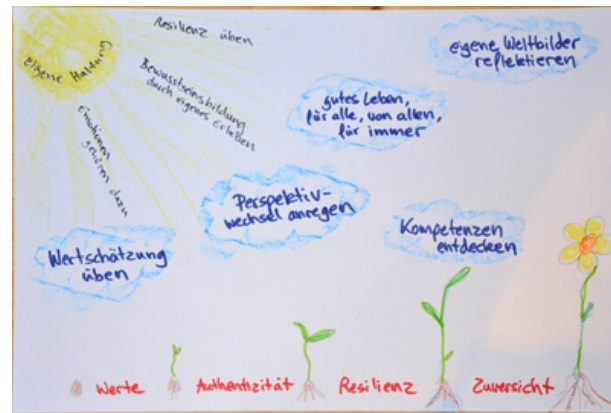 eigene Haltung
Resilienz üben
Bewusstseinsbildung
durch eigenes Erleben
Emotionen
gehören dazu
eigene Weltbilder
reflektieren
gutes Leben,
für alle, von allen,
für immer
Perspektiv-
wechsel anregen
Wertschätzung
üben
Kompetenzen
entdecken
Werte Authentizität Resilienz Zuversicht